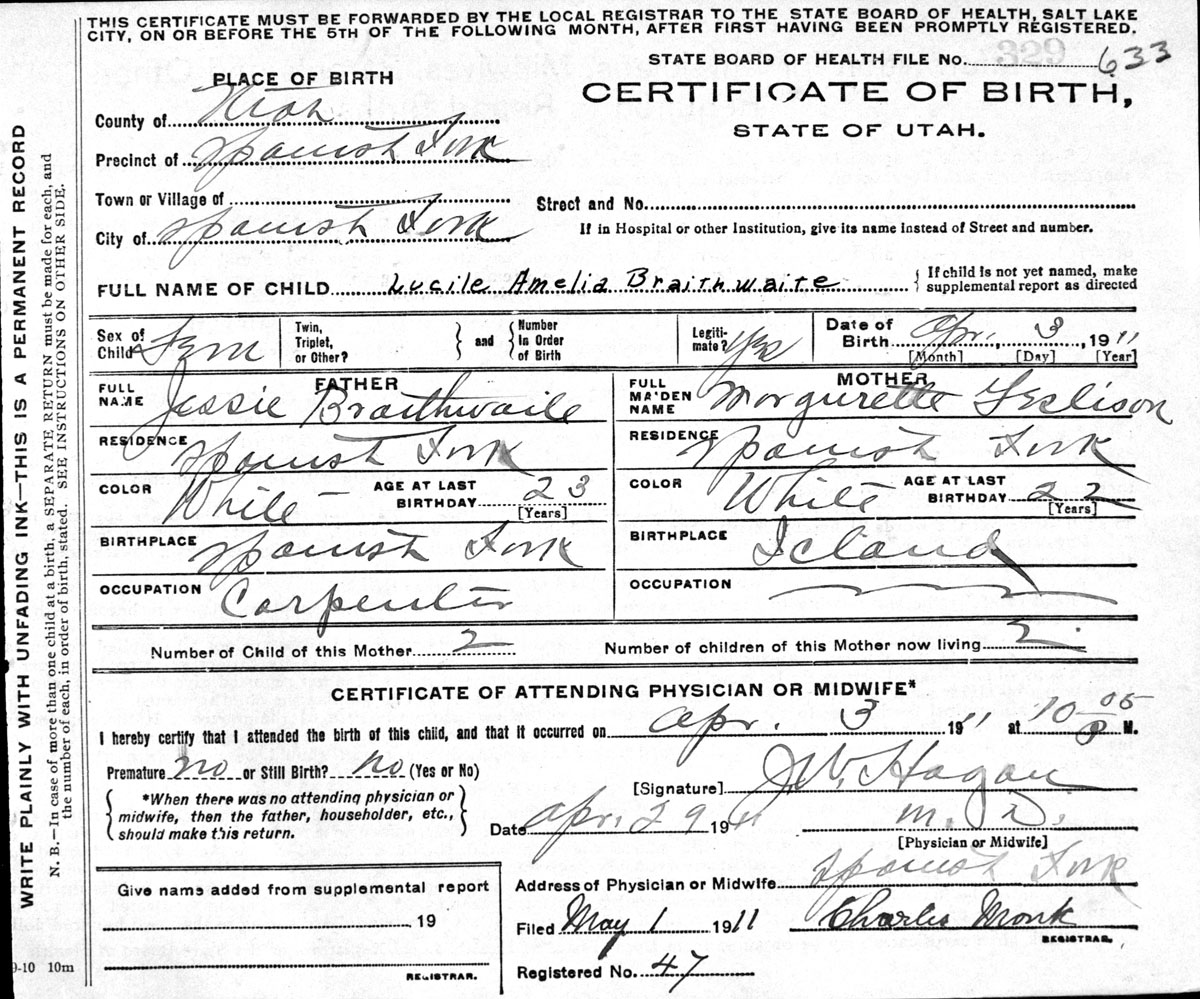 THIS CERTIFICATE MUST BE FORWARDED BY THE LOCAL REGISTRAR TO THE STATE BOARD OF HEALTH, SALT LAKE
CITY, ON OR BEFORE THE 5TH OF THE FOLLOWING MONTH, AFTER FIRST HAVING BEEN PROMPTLY REGISTERED.
STATE BOARD OF HEALTH FILE NO. 633
329
PLACE OF BIRTH
CERTIFICATE OF BIRTH,
STATE OF UTAH.
County of Utah
Precinct of Spanish Fork
Town or Village of
Street and No.
City of Spanish Fork
If in Hospital or other Institution, give its name instead of Street and number.
FULL NAME OF CHILD Lucile Amelia Braithwaite { If child is not yet named, make
supplemental report as directed
Sex of Child Fem Twin, Triplet, or Other? } and { Number In Order of Birth Legiti-mate? Yes Date of Birth Apr. 3, 1911
[Month] [Day] [Year]
FATHER
FULL NAME Jessie Braithwaite
MOTHER
FULL MAIDEN NAME Morgurette
RESIDENCE Spanish Fork
RESIDENCE Spanish Fork
COLOR White AGE AT LAST BIRTHDAY 23 [Years]
COLOR White AGE AT LAST BIRTHDAY 22 [Years]
BIRTHPLACE Spanish Fork
BIRTHPLACE Icland
OCCUPATION Carpenter
OCCUPATION
Number of Child of this Mother 2 Number of children of this Mother now living 2.
CERTIFICATE OF ATTENDING PHYSICIAN OR MIDWIFE*
I hereby certify that I attended the birth of this child, and that it occurred on Apr. 3 1911 at 10-05 P M.
Premature no or Still Birth? no (Yes or No)
[Signature] J.W. Hagan
{ *When there was no attending physician or
midwife, then the father, householder, etc.,
should make this return. }
Date Apr. 29 1911 M.D.
[Physician or Midwife]
Address of Physician or Midwife Spanish Fork
Give name added from supplemental report
19
REGISTRAR.
Filed May 1 1911 Charles Monk
REGISTRAR.
Registered No. 47
9-10 10m
WRITE PLAINLY WITH UNFADING INK—THIS IS A PERMANENT RECORD
N. B.—In case of more than one child at a birth, a SEPARATE RETURN must be made for each, and
the number of each, in order of birth, stated. SEE INSTRUCTIONS ON OTHER SIDE.